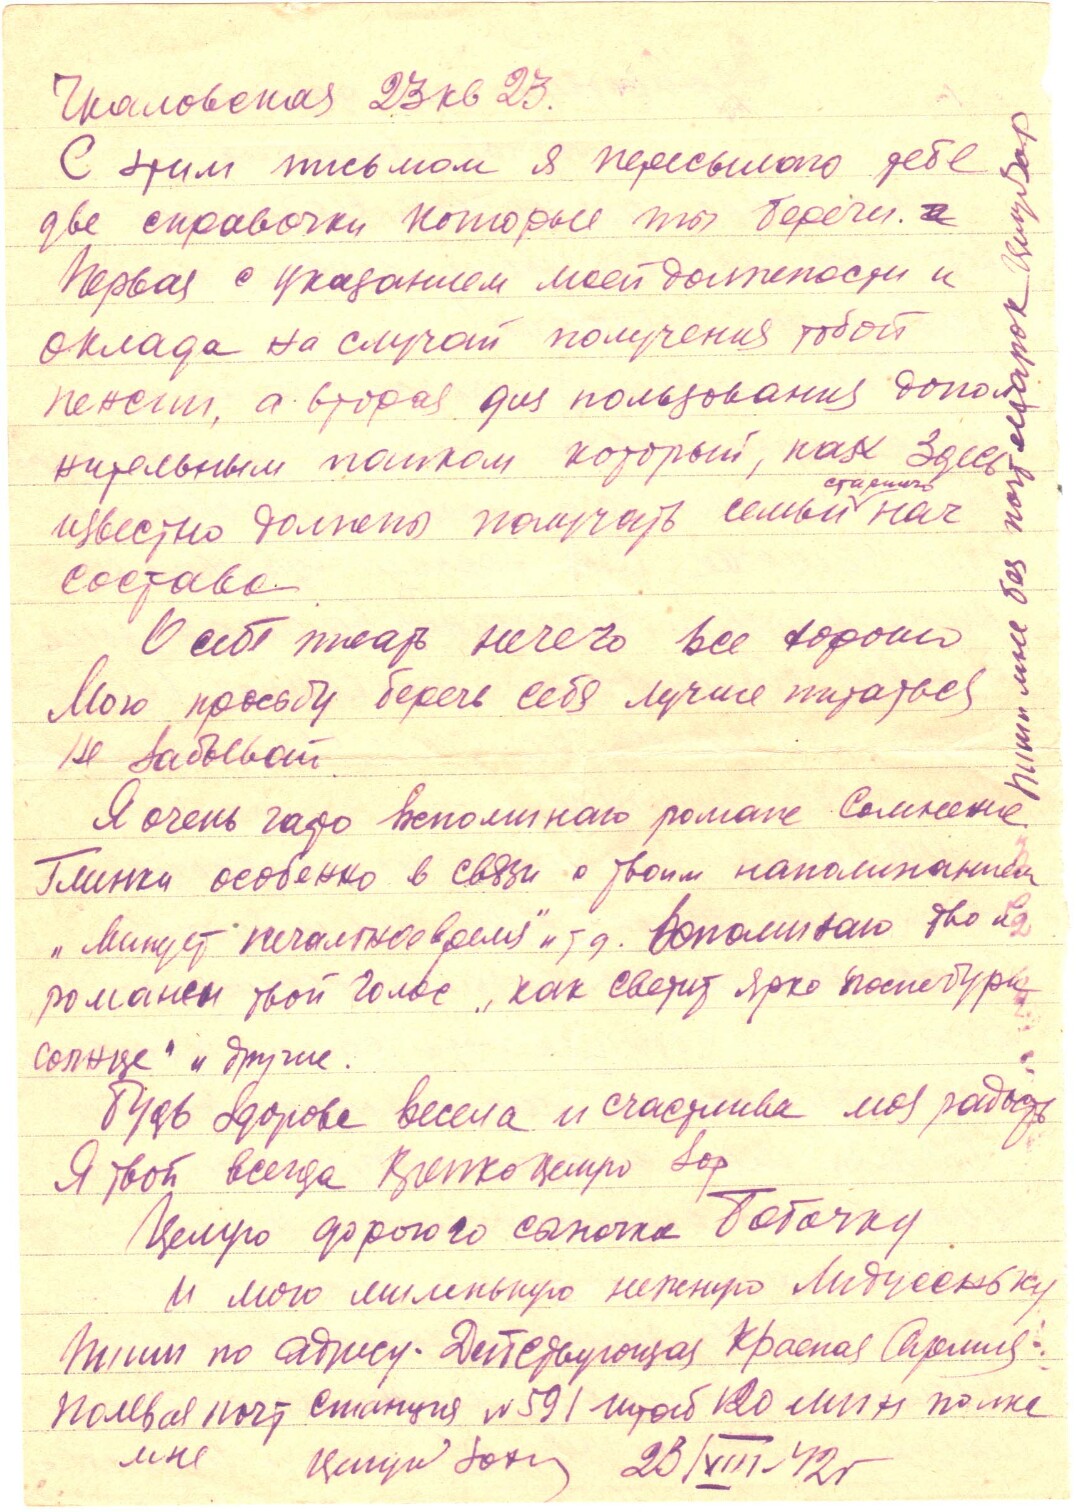 Чкаловская 23 кв 23.
С этим письмом я пересылаю тебе
две справочки которые ты береги.
Первая с указанием моей должности и
оклада на случай получения тобой
пенсии, а вторая для пользования допол
нительным пайком который, как здесь
известно должны получать семьи старшего нач
состава
О себе писать нечего все хорошо
Мою просьбу беречь себя лучше питаться
не забывай
Я очень часто вспоминаю романс Сомнение
Глинки особенно в связи с твоим напоминанием
„Минует печальное время" и т д. Вспоминаю твои
романсы твой голос „как светит ярко после бури
солнце" и другие.
Будь здорова весела и счастлива моя радость
Я твой всегда Крепко целую Зор
Целую дорогого сыночка Бобочку
и мою миленькую нежную Лидусеньку
Пиши по адресу - Действующая Красная Армия
Полевая почт станция № 591 штаб 120 мин полка
мне Целую 23/VIII-42г
Пиши мне без почт марок Целую Зор